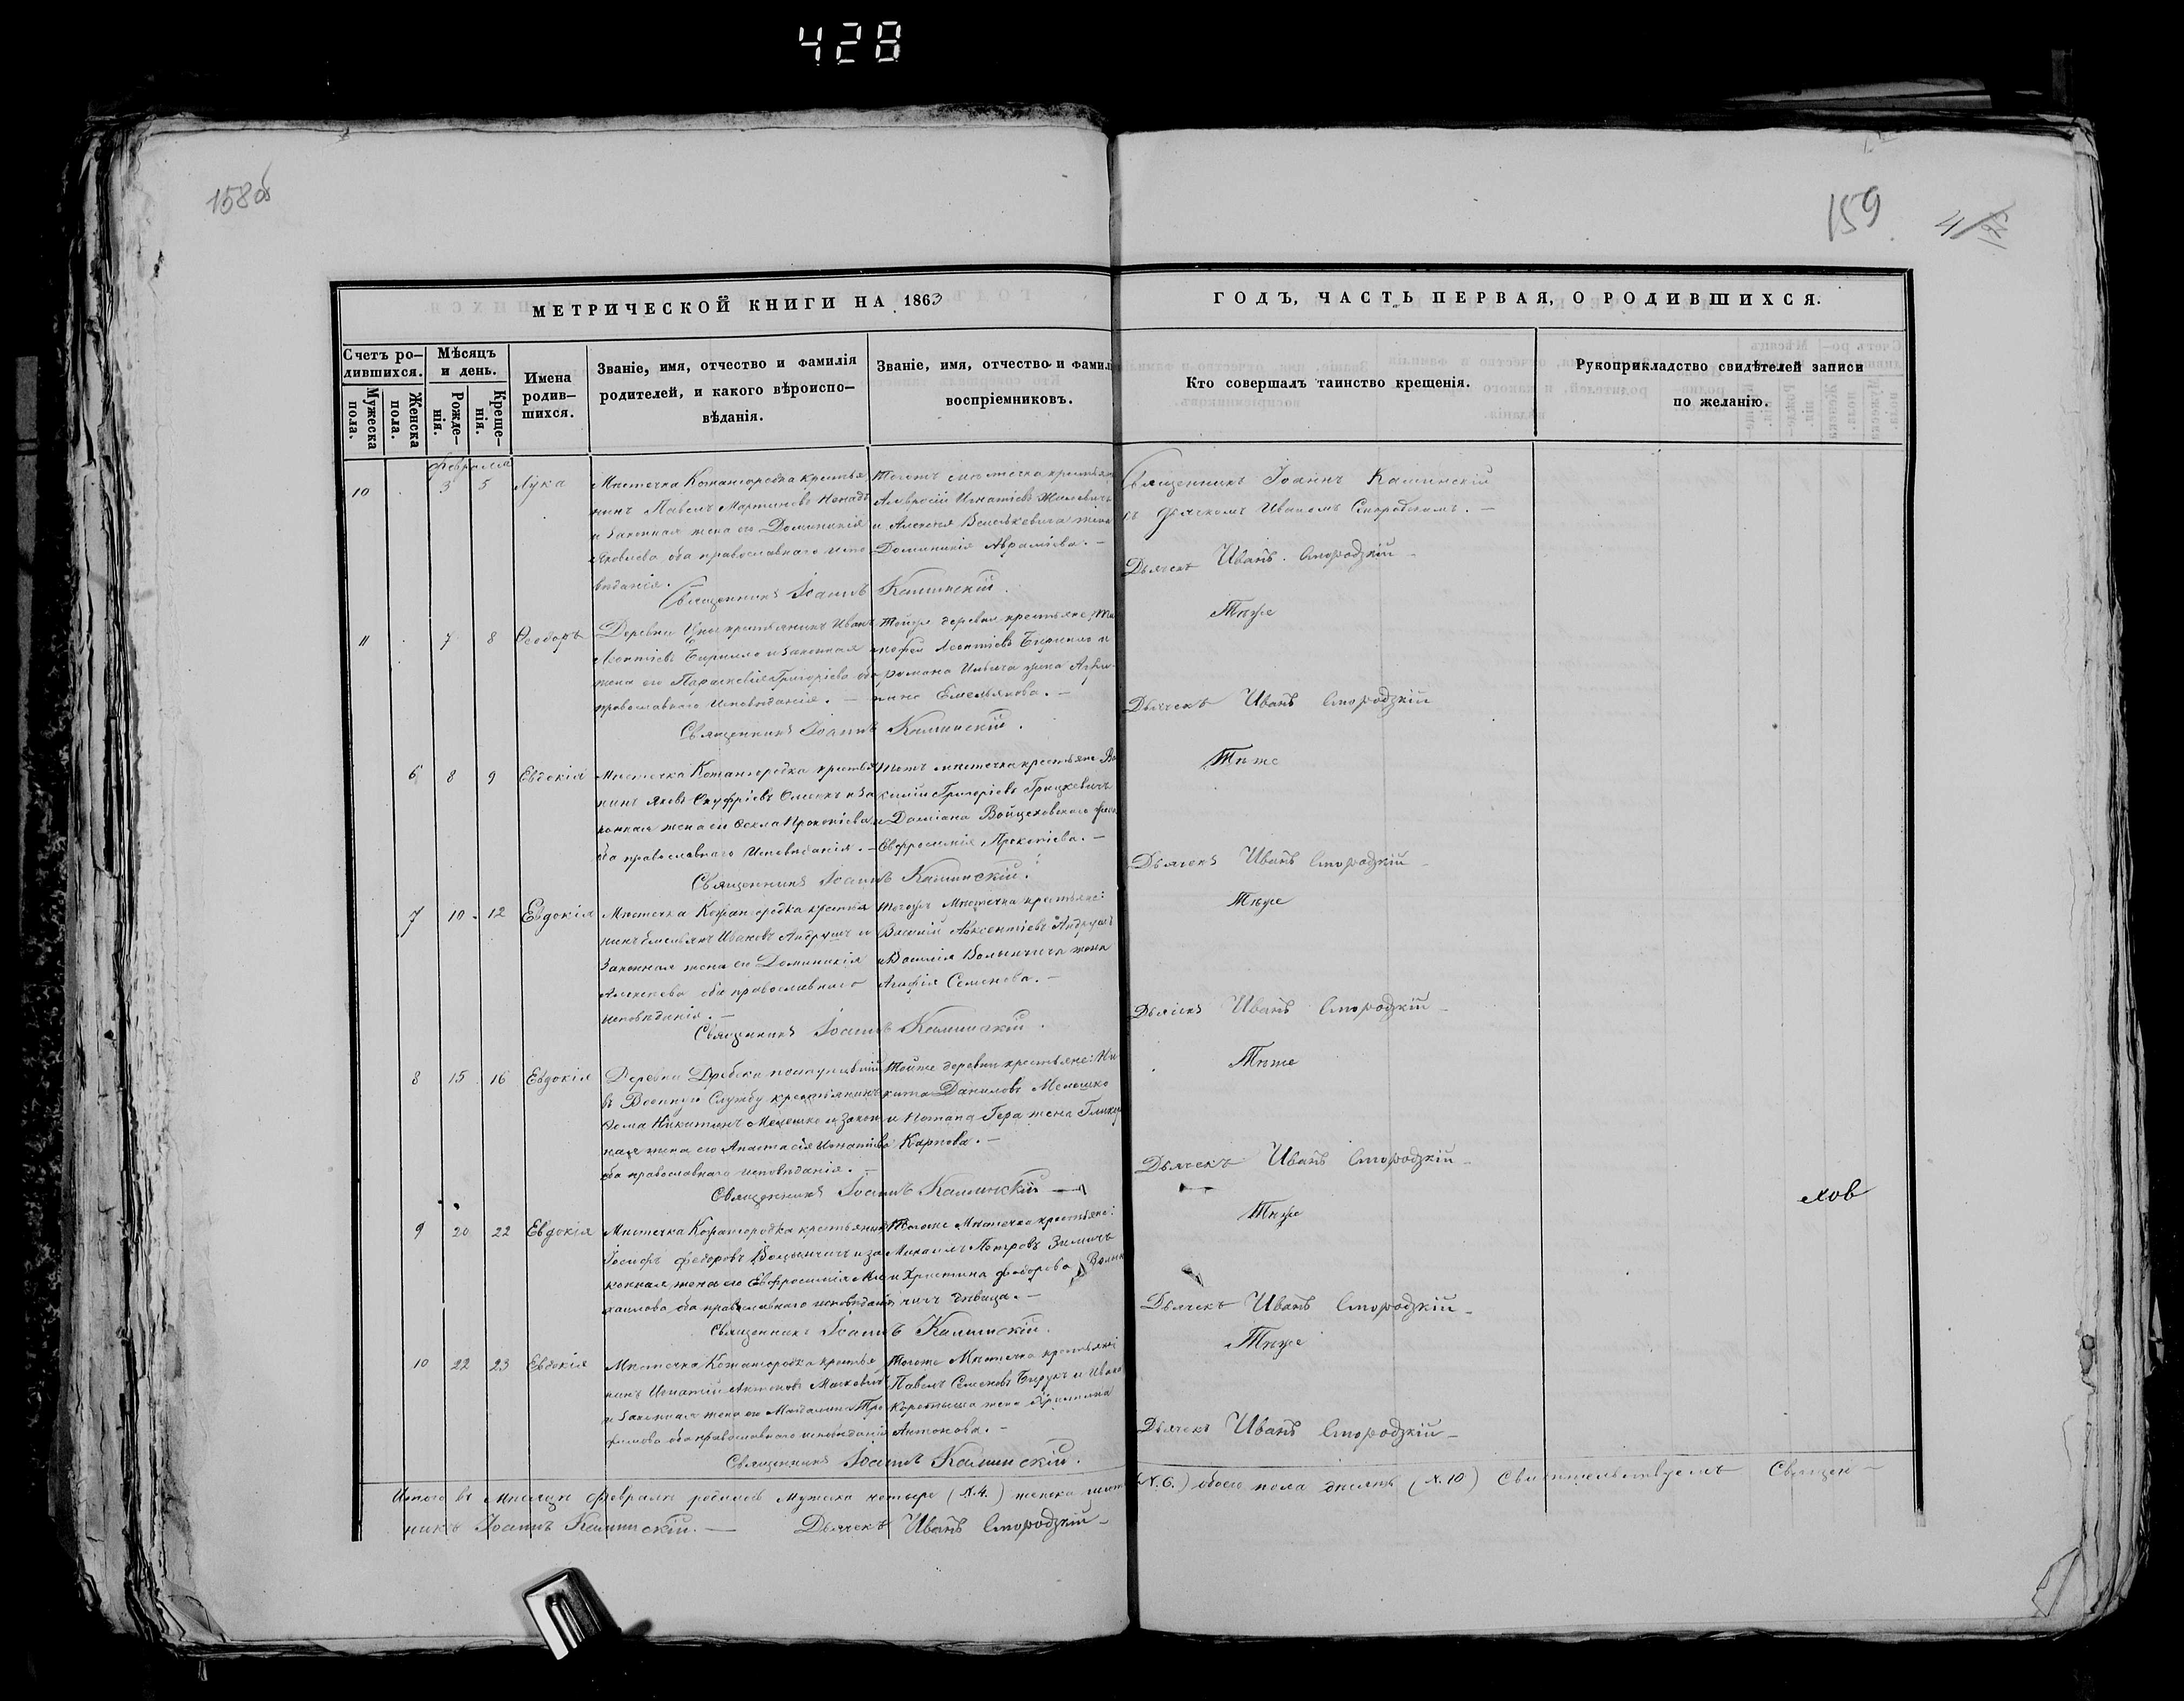 428
158об
159
4
МЕТРИЧЕСКОЙ КНИГИ НА 1863
ГОДЪ, ЧАСТЬ ПЕРВАЯ, О РОДИВШИХСЯ.
Счетъ ро-
дившихся.
Мужеска пола.
Женска пола.
Мѣсяцъ
и день.
Рожде-
нія.
Креще-
нія.
Имена
родив-
шихся.
Званіе, имя, отчество и фамилія
родителей, и какого вѣроиспо-
вѣданія.
Званіе, имя, отчество и фамил
воспріемниковъ.
Кто совершалъ таинство крещенія.
Рукоприкладство свидѣтелей записи
по желанію.
Февраля
10 3 5 Лука
Мѣстечка Кожангородка крестья
нинъ Павелъ Мартиновъ
и законная жена его Доминикія
Яковлева оба православнаго испо
вѣданія. —
Священникъ Іоаннъ Калинскій.
Тогожъ мѣстечка крестьяне
Амвросій Игнатіевъ
и Алексея жена
Доминикія Авраміева. —
Священникъ Іоаннъ Калинскій
съ дьячкомъ Иваномъ. —
Дьячекъ Иванъ Смородзкій —
11 7 8 Ѳеодоръ
Деревни крестьянинъ Иванъ
Леонтіевъ Бирилло и законная
жена его Параскевія Григоріева оба
православнаго исповѣданія. —
Священникъ Іоаннъ Калинскій.
Тойже деревни крестьяне: Ти
мофей Леонтіевъ Бирилло и
романа жена Агри-
пина Емельянова. —
Тѣже
Дьячекъ Иванъ Смородзкій
6 8 9 Евдокія
Мѣстечка Кожангородка крестья
нинъ Яковъ Онуфріевъ и за
конная жена его Ѳекла Прокопіева
оба православнаго исповѣданія. —
Священникъ Іоаннъ Калинскій.
Тогожъ мѣстечка крестьяне Ва
силій Григоріевъ Грицкевичъ
и Даміана Войцеховскаго жена
Евфросинія Прокопіева. —
Тѣже
Дьячекъ Иванъ Смородзкій —
7 10 12 Евдокія
Мѣстечка Кожангородка крестья
нинъ Емельянъ Ивановъ Андрушъ и
законная жена его Доминикія
Алексеева оба православнаго
исповѣданія. —
Священникъ Іоаннъ Калинскій.
Тогожъ Мѣстечка крестьяне:
Василій Авксентіевъ Андрушъ
и Василія Волынчича жена
Агафія Семенова. —
Тѣже
Дьячекъ Иванъ Смородзкій —
8 15 16 Евдокія
Деревни Дребска поступившій
въ Военную Службу крестьянинъ
Ѳома Никитинъ Мелешко и закон
ная жена его Анастасія Игнатіева
оба православнаго исповѣданія. —
Священникъ Іоаннъ Калинскій —
Тойже деревни крестьяне: Ни
кита Даниловъ Мелешко
и Потапа Гера жена Гликер
Карпова. —
Тѣже
Дьячекъ Иванъ Смородзкій —
9 20 22 Евдокія
Мѣстечка Кожангородка крестьянинъ
Іосифъ Федоровъ Волынчичъ и за
конная жена его Евфросинія Ми
хаилова оба православнаго исповѣданія
Священникъ Іоаннъ Калинскій.
Тогоже Мѣстечка крестьяне:
Михаилъ Петровъ Зиличъ
и Христина Федорова Волын
чичъ дѣвица. —
Тѣже
Дьячекъ Иванъ Смородзкій —
10 22 23 Евдокія
Мѣстечка Кожангородка крестья
нинъ Игнатій Антоновъ Мацкевичъ
и законная жена его Магдалина Тро
фимова оба православнаго исповѣданія
Священникъ Іоаннъ Калинскій.
Тогоже Мѣстечка крестьяне
Павелъ Семеновъ Бирукъ и Ивана
жена Христина
Антонова. —
Тѣже
Дьячекъ Иванъ Смородзкій —
Итого въ Мѣсяцѣ Февралѣ родилось Мужеска четыре (№ 4.) женска шесть (№ 6.) обоего пола десять (№ 10) Свидѣтельствуемъ Священ—
никъ Іоаннъ Калинскій. — Дьячекъ Иванъ Смородзкій —